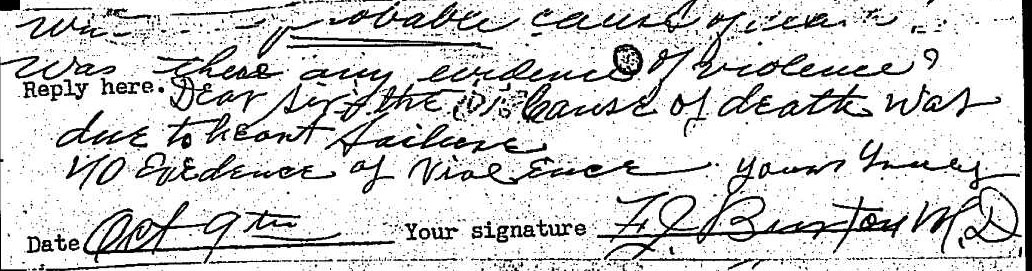 probable cause of
Was there any evidence of violence?
Reply here. Dear Sir, the cause of death was
due to heart failure
NO Evidence of Violence yours Truly
Date Oct 9th Your signature F.J. Burton M.D.